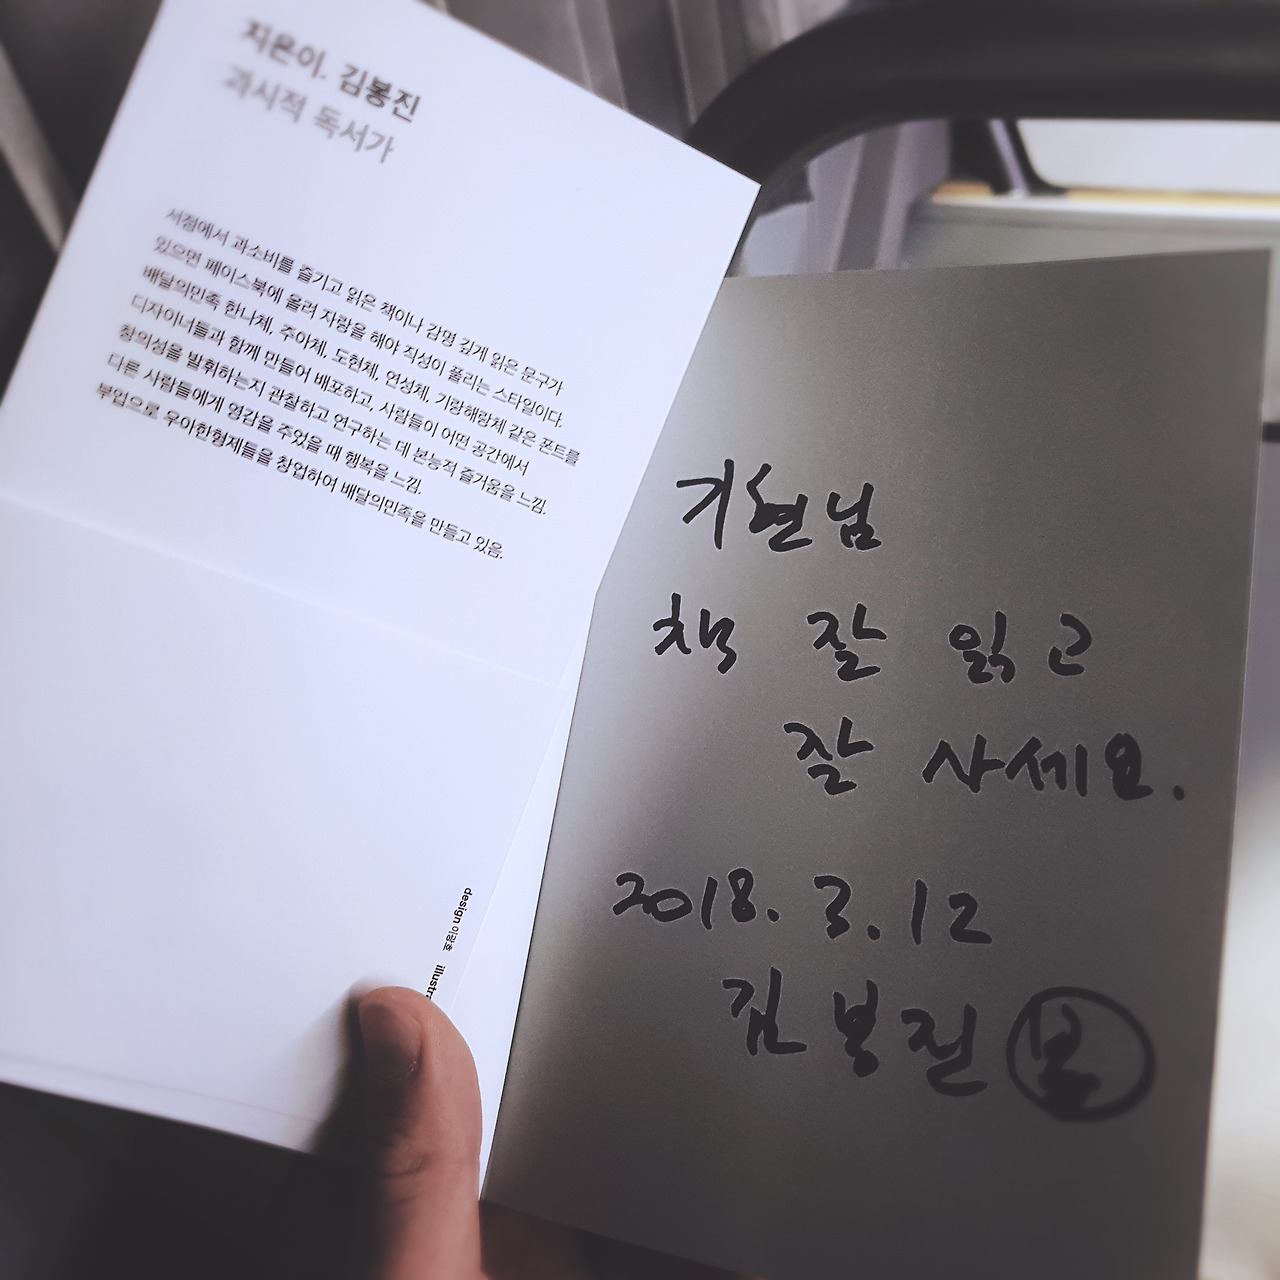 지은이. 김봉진
과시적 독서가
서점에서 과소비를 즐기고 읽은 책이나 감명 깊게 읽은 문구가
있으면 페이스북에 올려 자랑을 해야 직성이 풀리는 스타일이다.
배달의민족 한나체, 주아체, 도현체, 연성체, 기랑해랑체 같은 폰트를
디자이너들과 함께 만들어 배포하고, 사람들이 어떤 공간에서
창의성을 발휘하는지 관찰하고 연구하는 데 본능적 즐거움을 느낌.
다른 사람들에게 영감을 주었을 때 행복을 느낌.
부업으로 우아한형제들을 창업하여 배달의민족을 만들고 있음.
design 이강호 illustra
기현님
책 잘 읽고
잘 사세요.
2018. 3. 12
김봉진 봉